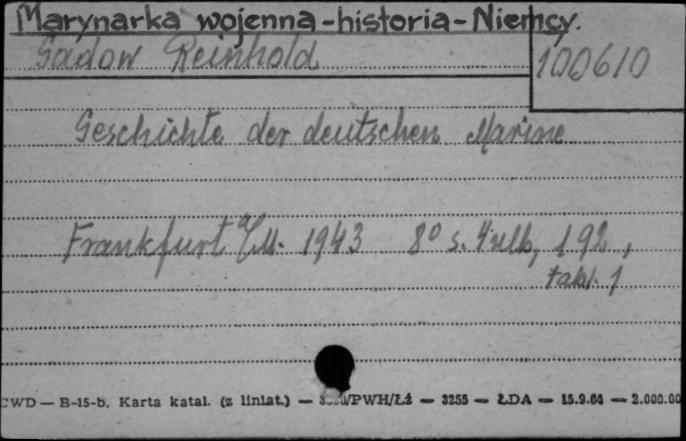 Marynarka wojenna - historia - Niemcy.
Gadow Reinhold
100610
Geschichte der deutschen Marine
Frankfurt a/M. 1943 8° s. 4 nlb, 192,
tabl. 1
CWD — B-15-b. Karta katal. (z liniat.) — /PWH/Łź — 3255 — ŁDA — 15.9.64 — 2.000.00